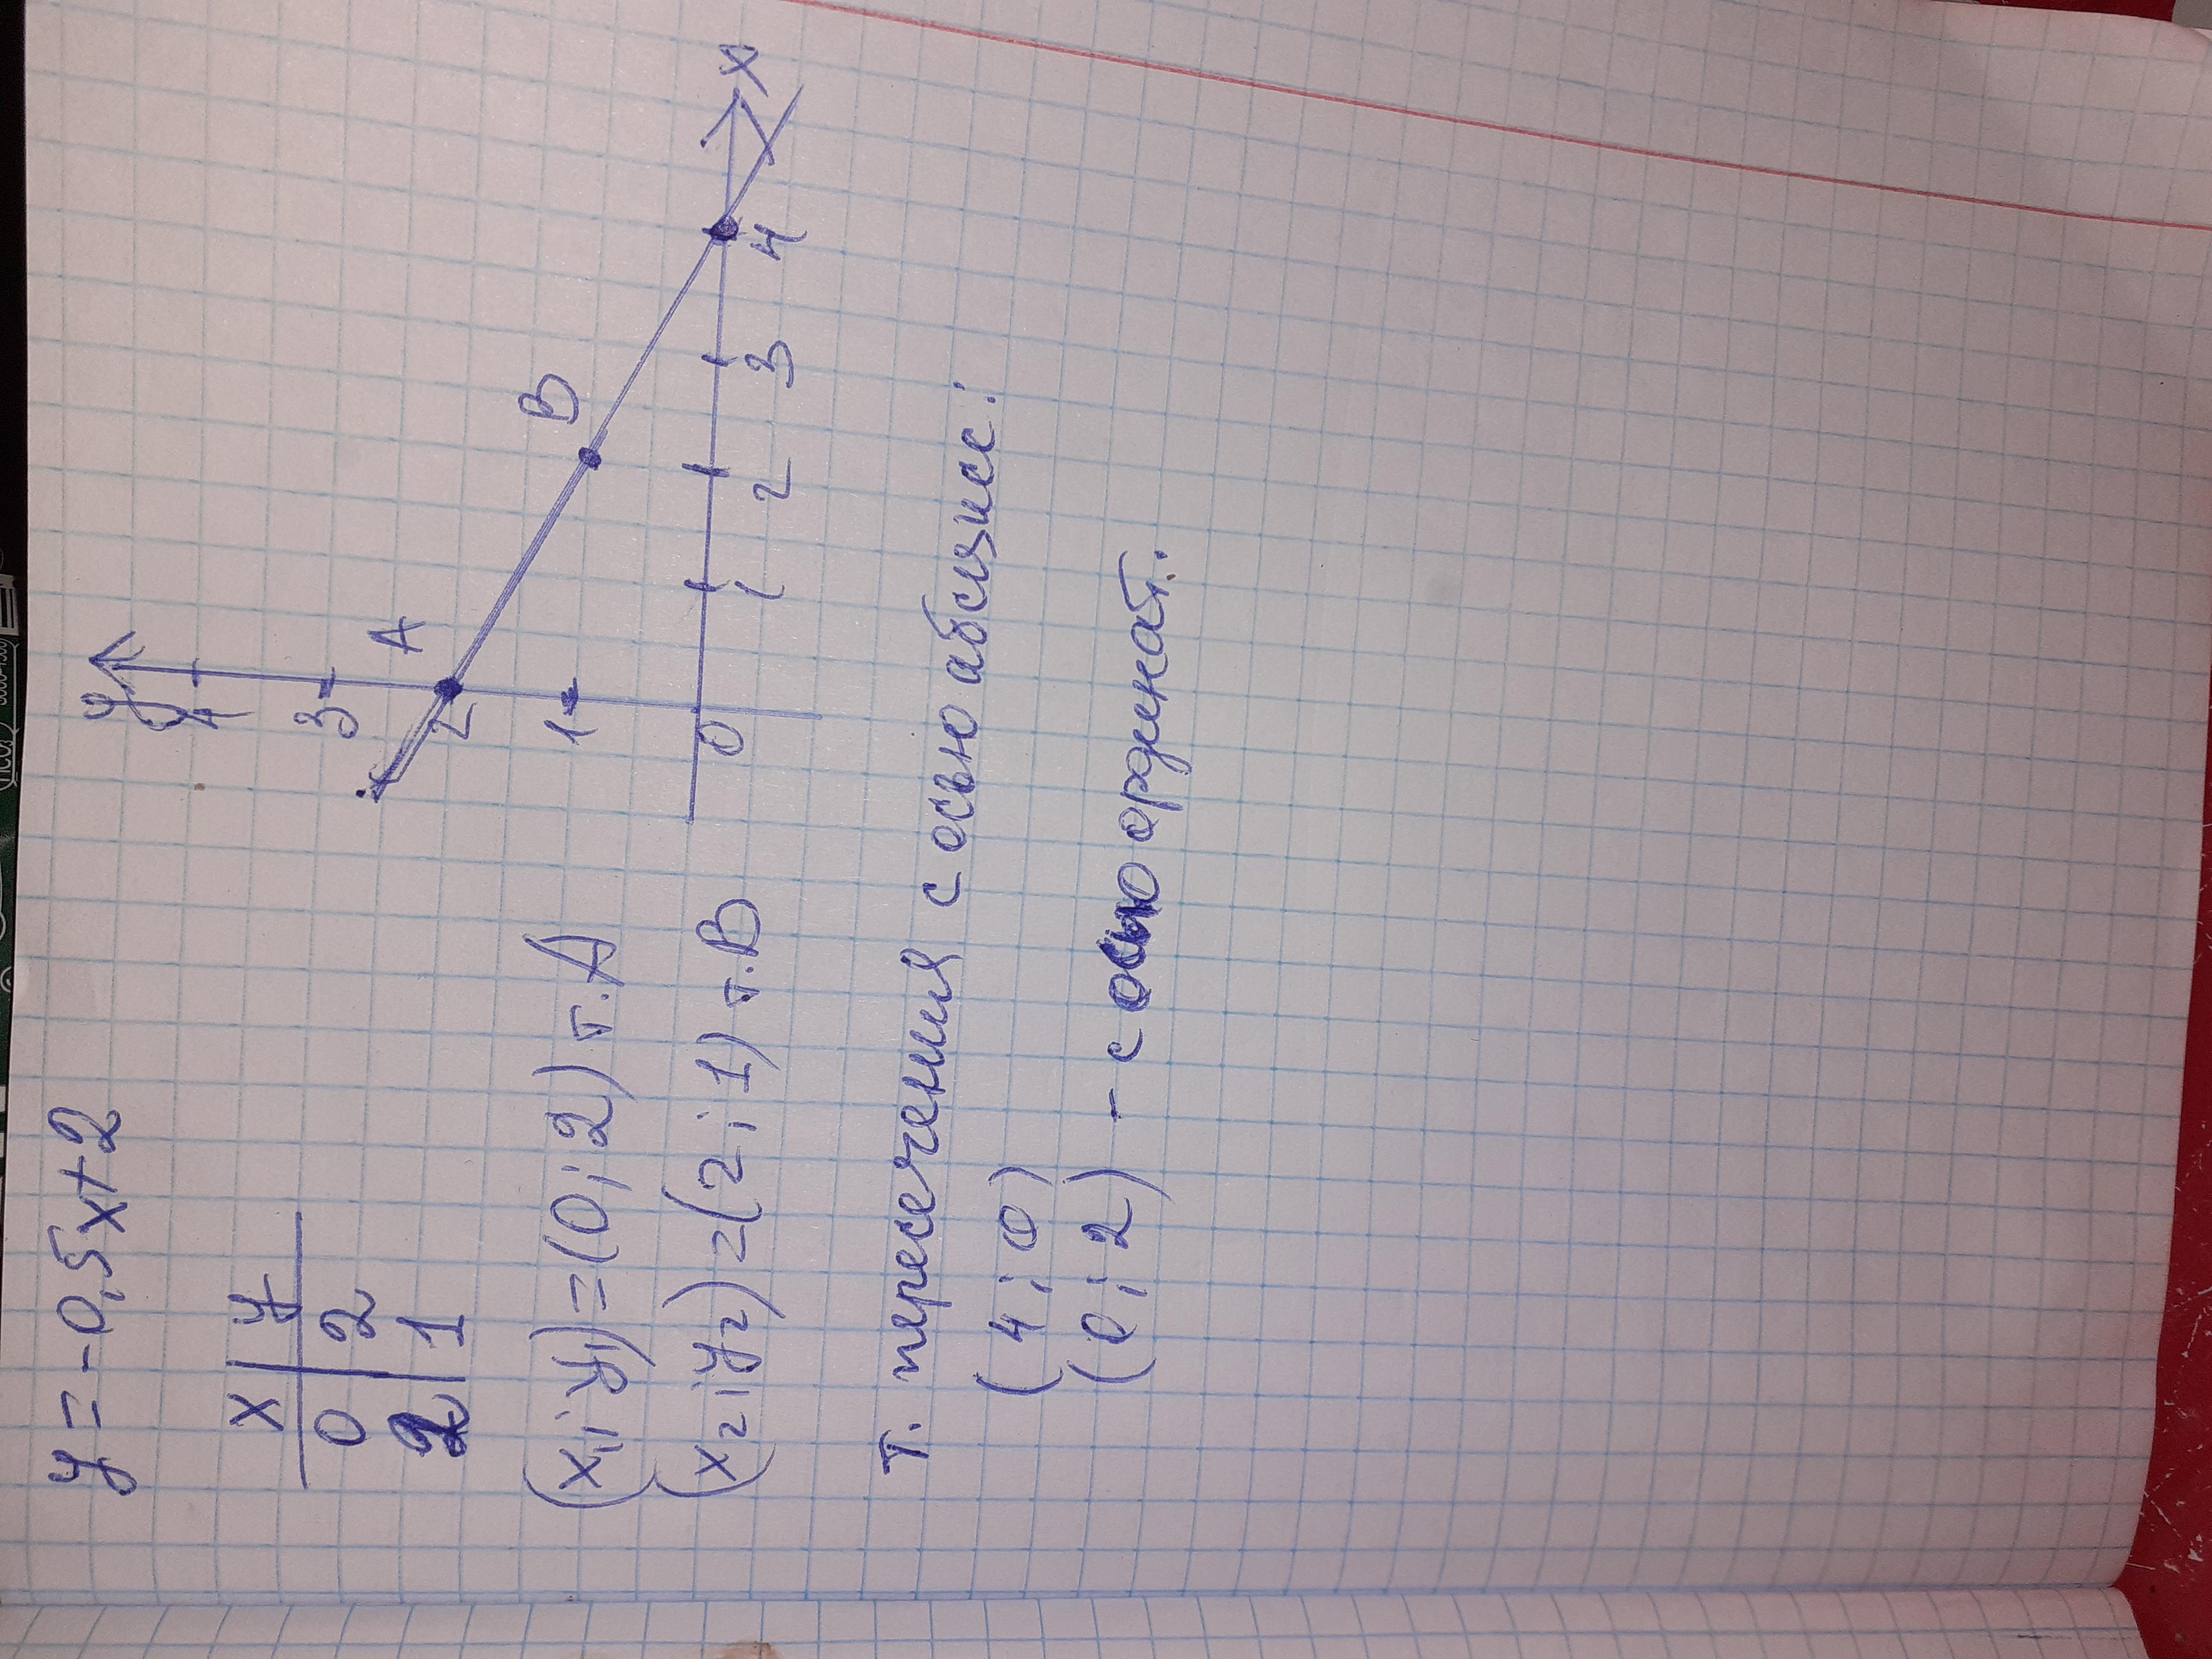 y = -0,5x+2
x | y
0 | 2
2 | 1
(x₁; y₁) = (0; 2) т. A
(x₂; y₂) = (2; 1) т. B
y
4
3
2
1
A
B
0
1
2
3
4
x
т. пересечения с осью абсцисс:
(4; 0)
(0; 2) - с осью ординат.